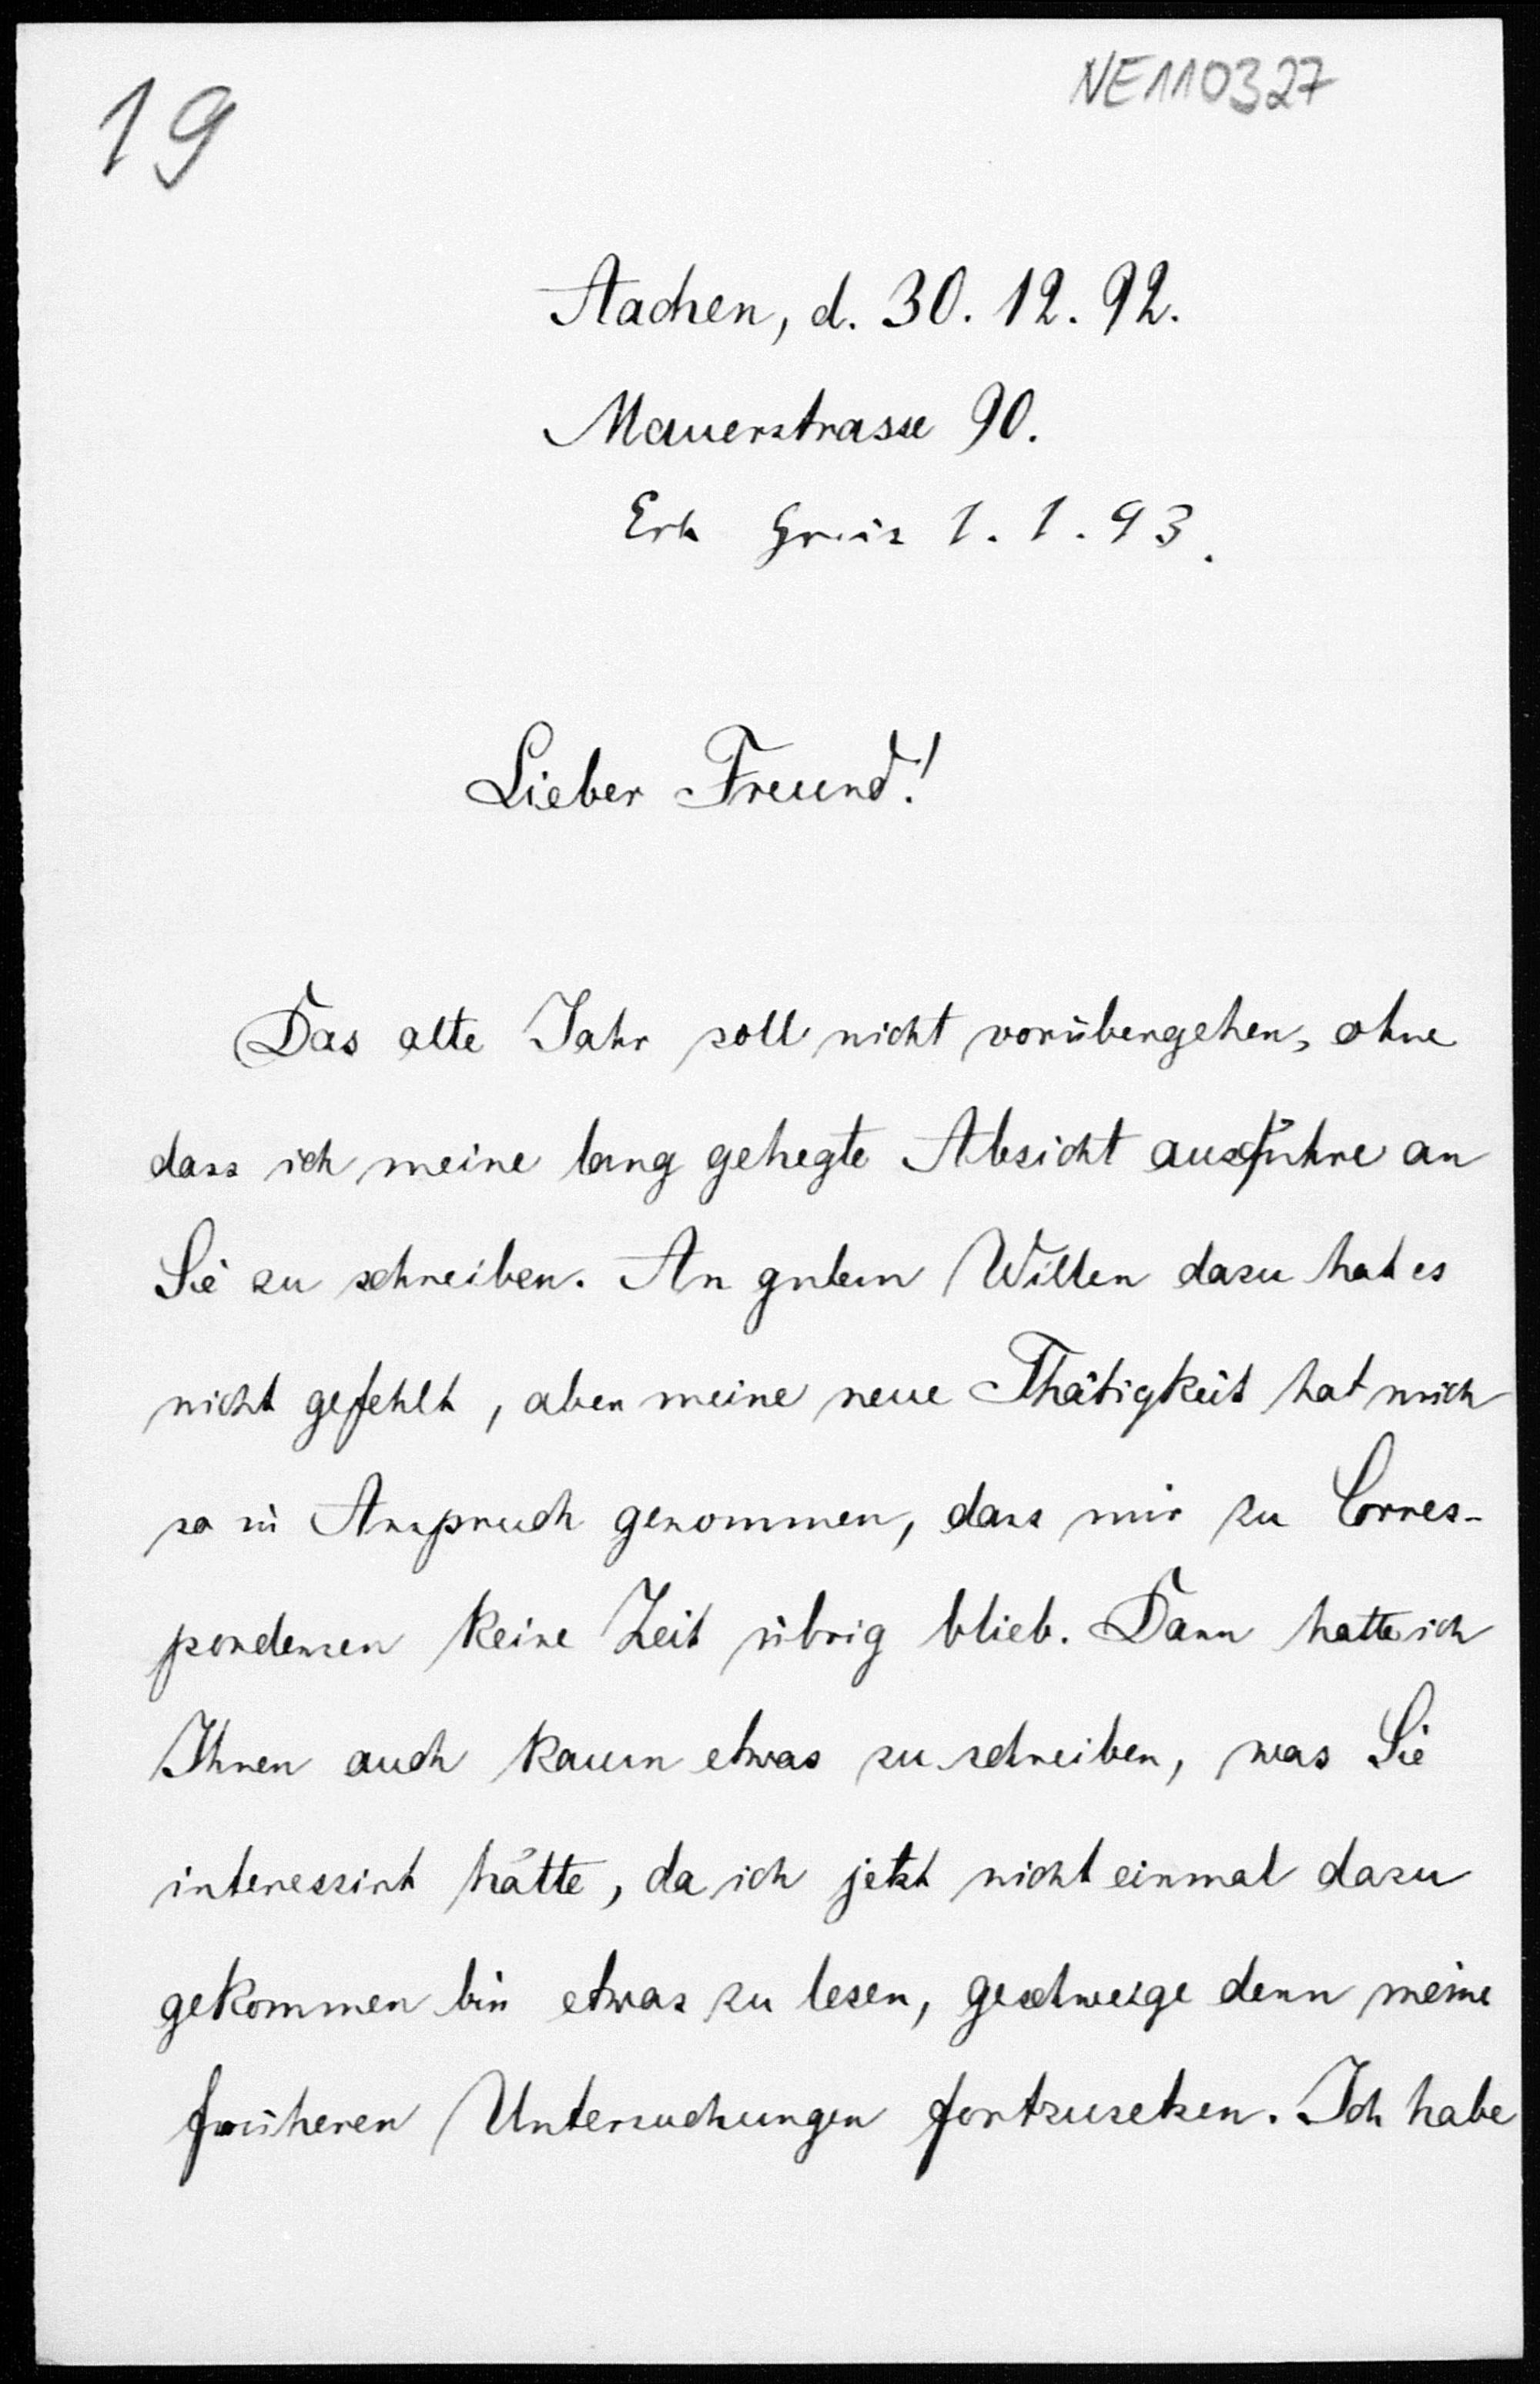 19
NE110327
Aachen, d. 30. 12. 92.
Mauerstrasse 90.
Erh 1. 1. 93.
Lieber Freund!
Das alte Jahr soll nicht vorübergehen, ohne
dass ich meine lang gehegte Absicht ausführe an
Sie zu schreiben. An gutem Willen dazu hat es
nicht gefehlt, aber meine neue Thätigkeit hat mich
so in Anspruch genommen, dass mir zu Corres-
pondenzen keine Zeit übrig blieb. Dann hatte ich
Ihnen auch kaum etwas zu schreiben, was Sie
interessirt hätte, da ich jetzt nicht einmal dazu
gekommen bin etwas zu lesen, geschweige denn meine
früheren Untersuchungen fortzusetzen. Ich habe